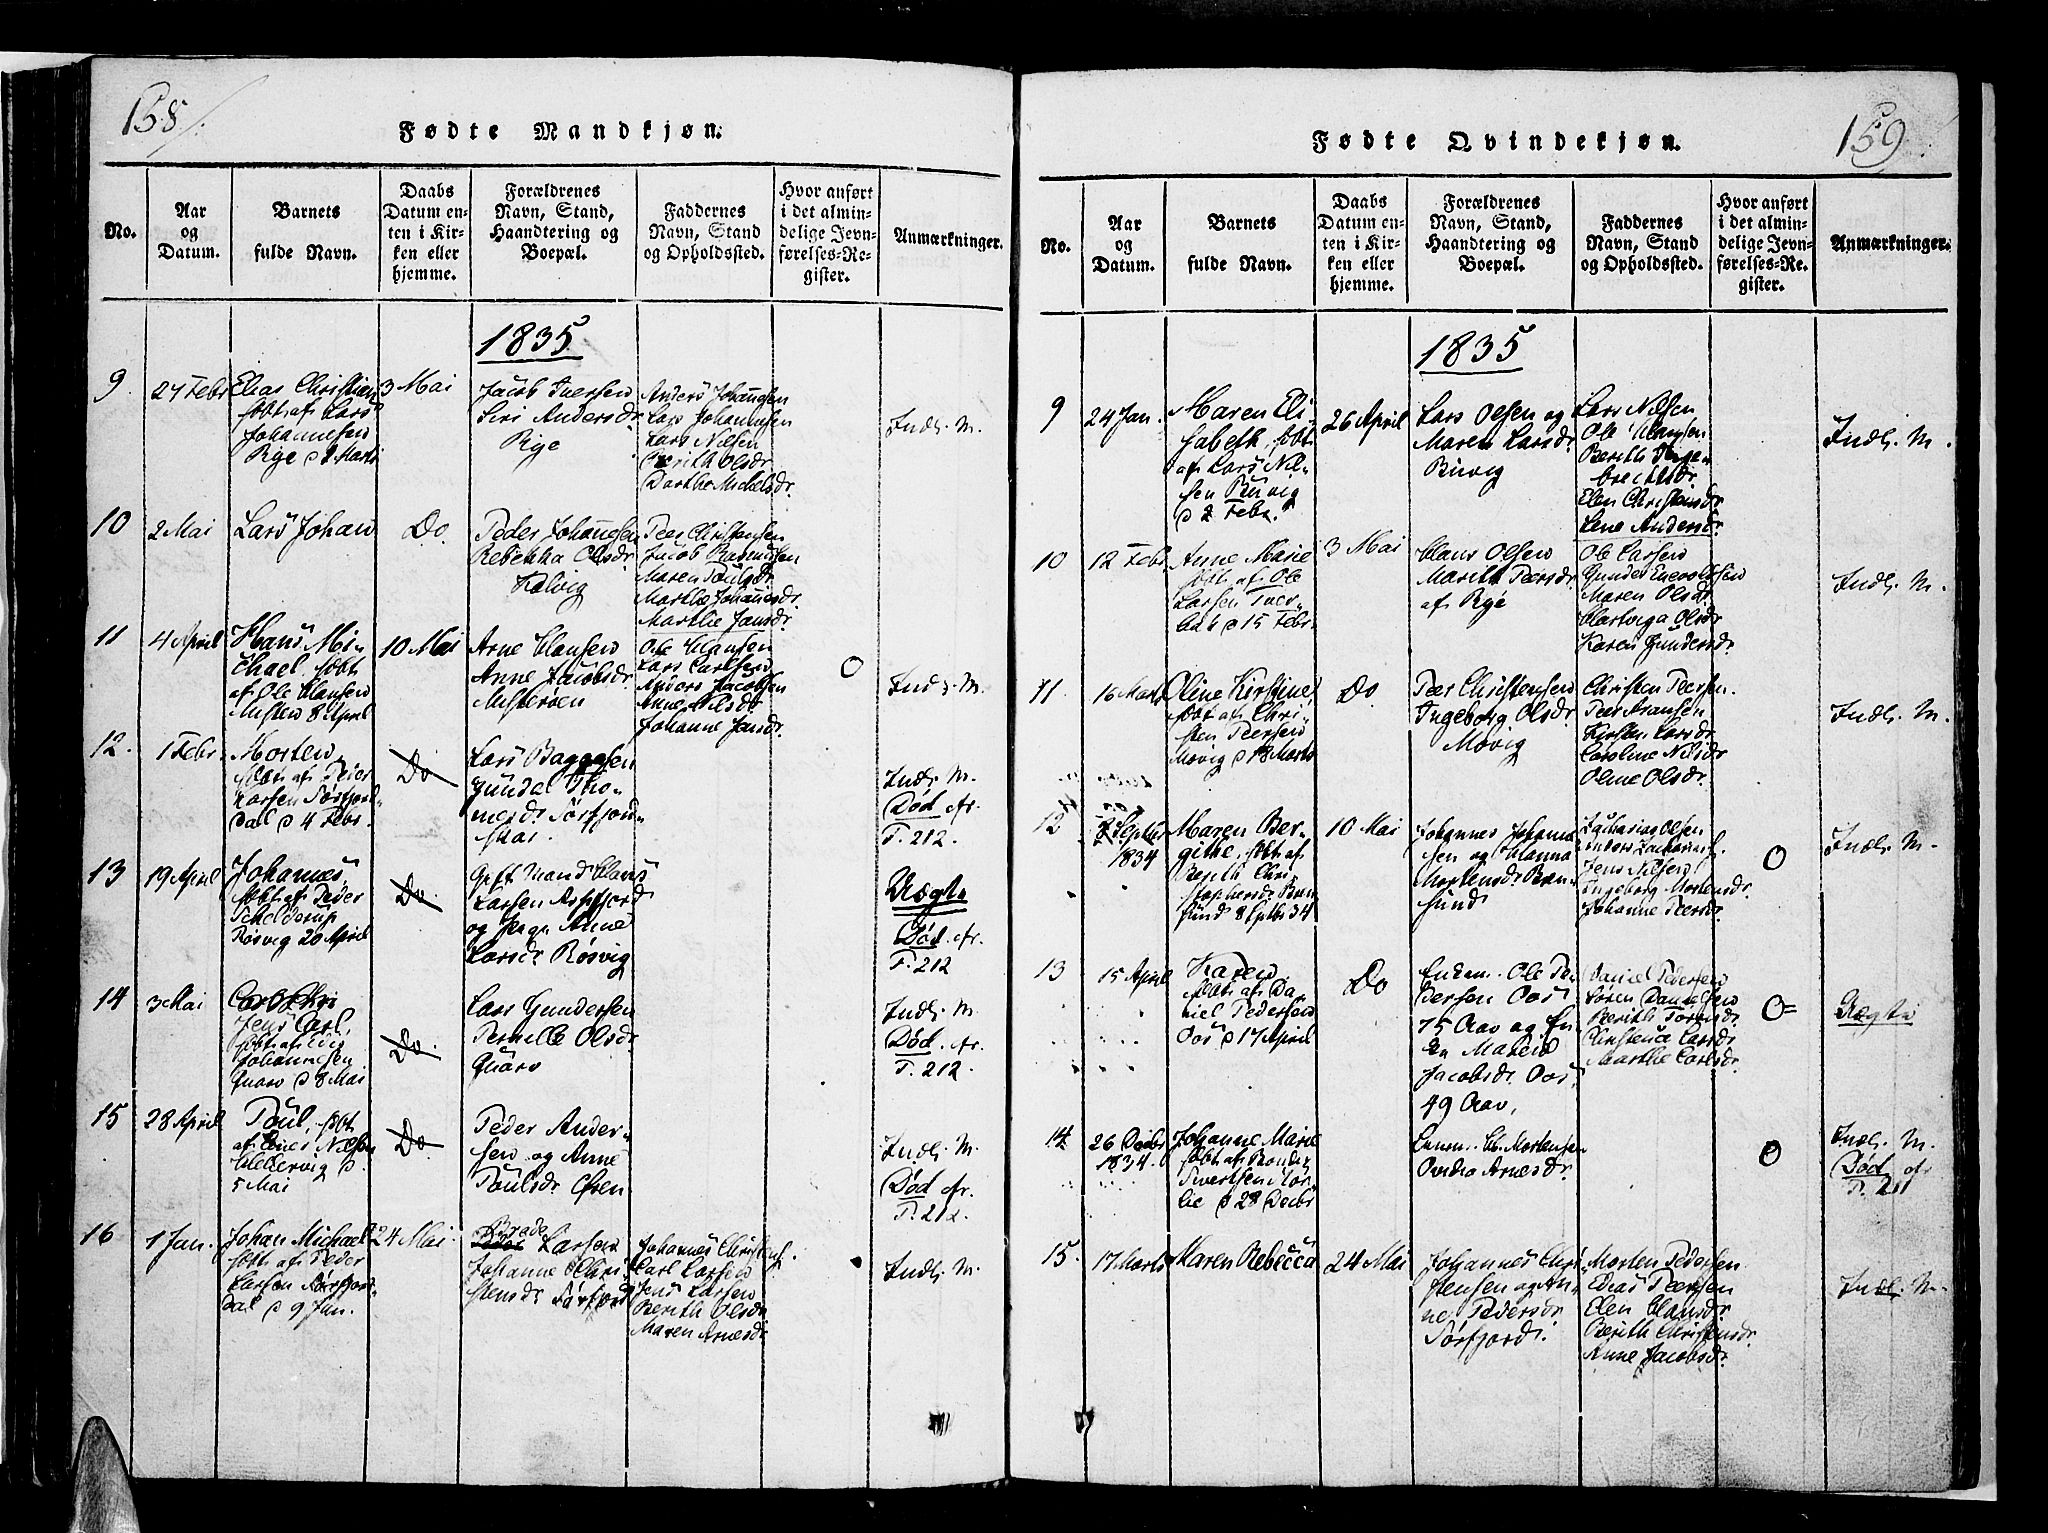 158/.
Fødte Mandkjøn.
No.
Aar
og
Datum.
Barnets
fulde Navn.
Daabs
Datum en-
ten i Kir-
ken eller
hjemme.
Forældrenes
Navn, Stand,
Haandtering og
Boepæl.
Faddernes
Navn, Stand
og Opholdssted.
Hvor anført
i det almin-
delige Jevn-
førelses-Re-
gister.
Anmærkninger.
1835
9
27 Febr
Elias Christian
døbt af Lars
Johannesen
Rye d
Marts
3 Mai
Jacob Iversen
Siri Andersdr
Rye
Anders Johannsen
Lars Johannsen
Lars Nilsen
Berith Olsdr
Dorthe Mickelsdr.
Indl. M.
10
2 Mai
Lars Johan
Do.
Peder Johannsen
Rebekka Olsdr
Kalvig
Peer Christensen
Jacob Rasmussen
Maren Poulsdr
Marthe Johannesdr.
Marthe Jansdr.
11
4 April
Hans Mi-
chael, døbt
af Ole Hansen
Misten 8 April
10 Mai
Arne Hansen
Anne Jacobsdr.
Misterøen
Ole Hansen
Lars Carlsen
Anders Jacobsen
Anne Nilsdr.
Johanne Jansdr.
O
Indl. M.
12.
1 Febr.
Morten
døbt af Peder
Larsen Sørfjord-
dal d 4 Febr.
Do
Lars Baggesen
Gundel Tho-
mesdr Sørfjord-
Indl. M.
Død cfr.
P. 212.
13
19 April
Johannes
døbt af Peder
Schelderup
Røsvig 20 April
Do.
Gift Mand Claus
Larsen
og Anne
Larsdr Røsvig
Uægte
Død. cfr.
P. 212
14
3 Mai
Carl Chri
Jens Carl,
døbt af
Johannesen
Quarv d 8 Mai
Do.
Lars Gundersen
Pernille Olsdr.
Quarv
Indl. M.
Død. cfr.
P. 212.
15
28 April
Poul, døbt
af Enes Nilsen
Hellervig d.
5 Mai
Do.
Peder Ander-
sen og Anne
Poulsdr
Indl. M.
Død cfr.
P. 212.
16
1 Jan.
Johan Michael
døbt af Peder
Larsen Sørfjord-
dal d 9 Jan.
24 Mai.
Brade
Larsen
Johanne Chri-
stensdr Sørfjord
Johannes Christens.
Carl Larsen
Jens Larsen
Berith Olsdr
Maren Arnesdr
Indl. M.
159.
Fødte Qvindekjøn.
No.
Aar
og
Datum.
Barnets
fulde Navn.
Daabs
Datum en-
ten i Kir-
ken eller
hjemme.
Forældrenes
Navn, Stand,
Haandtering og
Boepæl.
Faddernes
Navn, Stand
og Opholdssted.
Hvor anført
i det almin-
delige Jevn-
førelses-Re.
gister.
Anmærkninger.
1835
9
24 Jan.
Maren Eli-
sabeth, døbt
af Lars Nil-
sen Buvig
d 2 Febr.
26 April
Lars Olsen og
Maren Larsdr
Buvig
Lars Nilsen
Ole Hansen
Berith Inge-
brechtsdr
Elen Christensdr
Lene Andersdr.
Indl. M.
10
12 Febr
Anne Marie
døbt af Ole
Larsen Tver-
d 15 Febr.
3 Mai
Hans Olsen
Marith Peersdr
af Rye
Ole Larsen
Gunder Enevoldsen
Maren Olsdr.
Hartviga Olsdr
Karen Gundersdr.
Indl. M.
11.
16 Marts
Oline Kirstine
døbt af Chri-
sten Peersen
Movig d 18 Marts
Do
Peer Christensen
Ingeborg Olsdr.
Movig
Christen Peersen.
Peer Aransen
Kirsten Larsdr
Caroline Nilsdr
Oline Olsdr.
Indl. M.
12
2 Septbr
1834
Maren Ber-
githe, døbt af
Berith Chri-
stophersdr Bren-
sund 8 Septbr 34
10 Mai
Johannes Johanne-
sen og Hanna
Mortensdr Bren-
sund
Zacharias Olsen
Anders Zachariæs.
Jens Nilsen
Ingeborg Mortensdr.
Johanne Peersdr.
O
Indl. M.
13
15 April
Karen
døbt af Da-
niel Pedersen
Oos d 17 April
Do
Enkem. Ole Pe-
dersen Oos
75 Aar og En-
ke Maren
Jacobsdr Oos
49 Aar,
Daniel Pedersen
Søren Danielsen
Berith Tørrisdr.
Christence Larsdr
Marthe Carlsdr.
O=
Uægte
14
26 Decbr
1834.
Johanne Marie
døbt af
Sivertsen Mør-
lie d 28 Decbr
Mortensen
Arnesdr.
O
Indl. M.
Død cfr
P. 211
15.
17 Marts
Maren Rebecca
24 Mai
Johannes Chri-
stensen og An-
ne Pedersdr
Sørfjord.
Morten Pedersen
Elias Peersen
Elen Hansdr
Berith Christensdr
Anne Jacobsdr.
Indl. M.